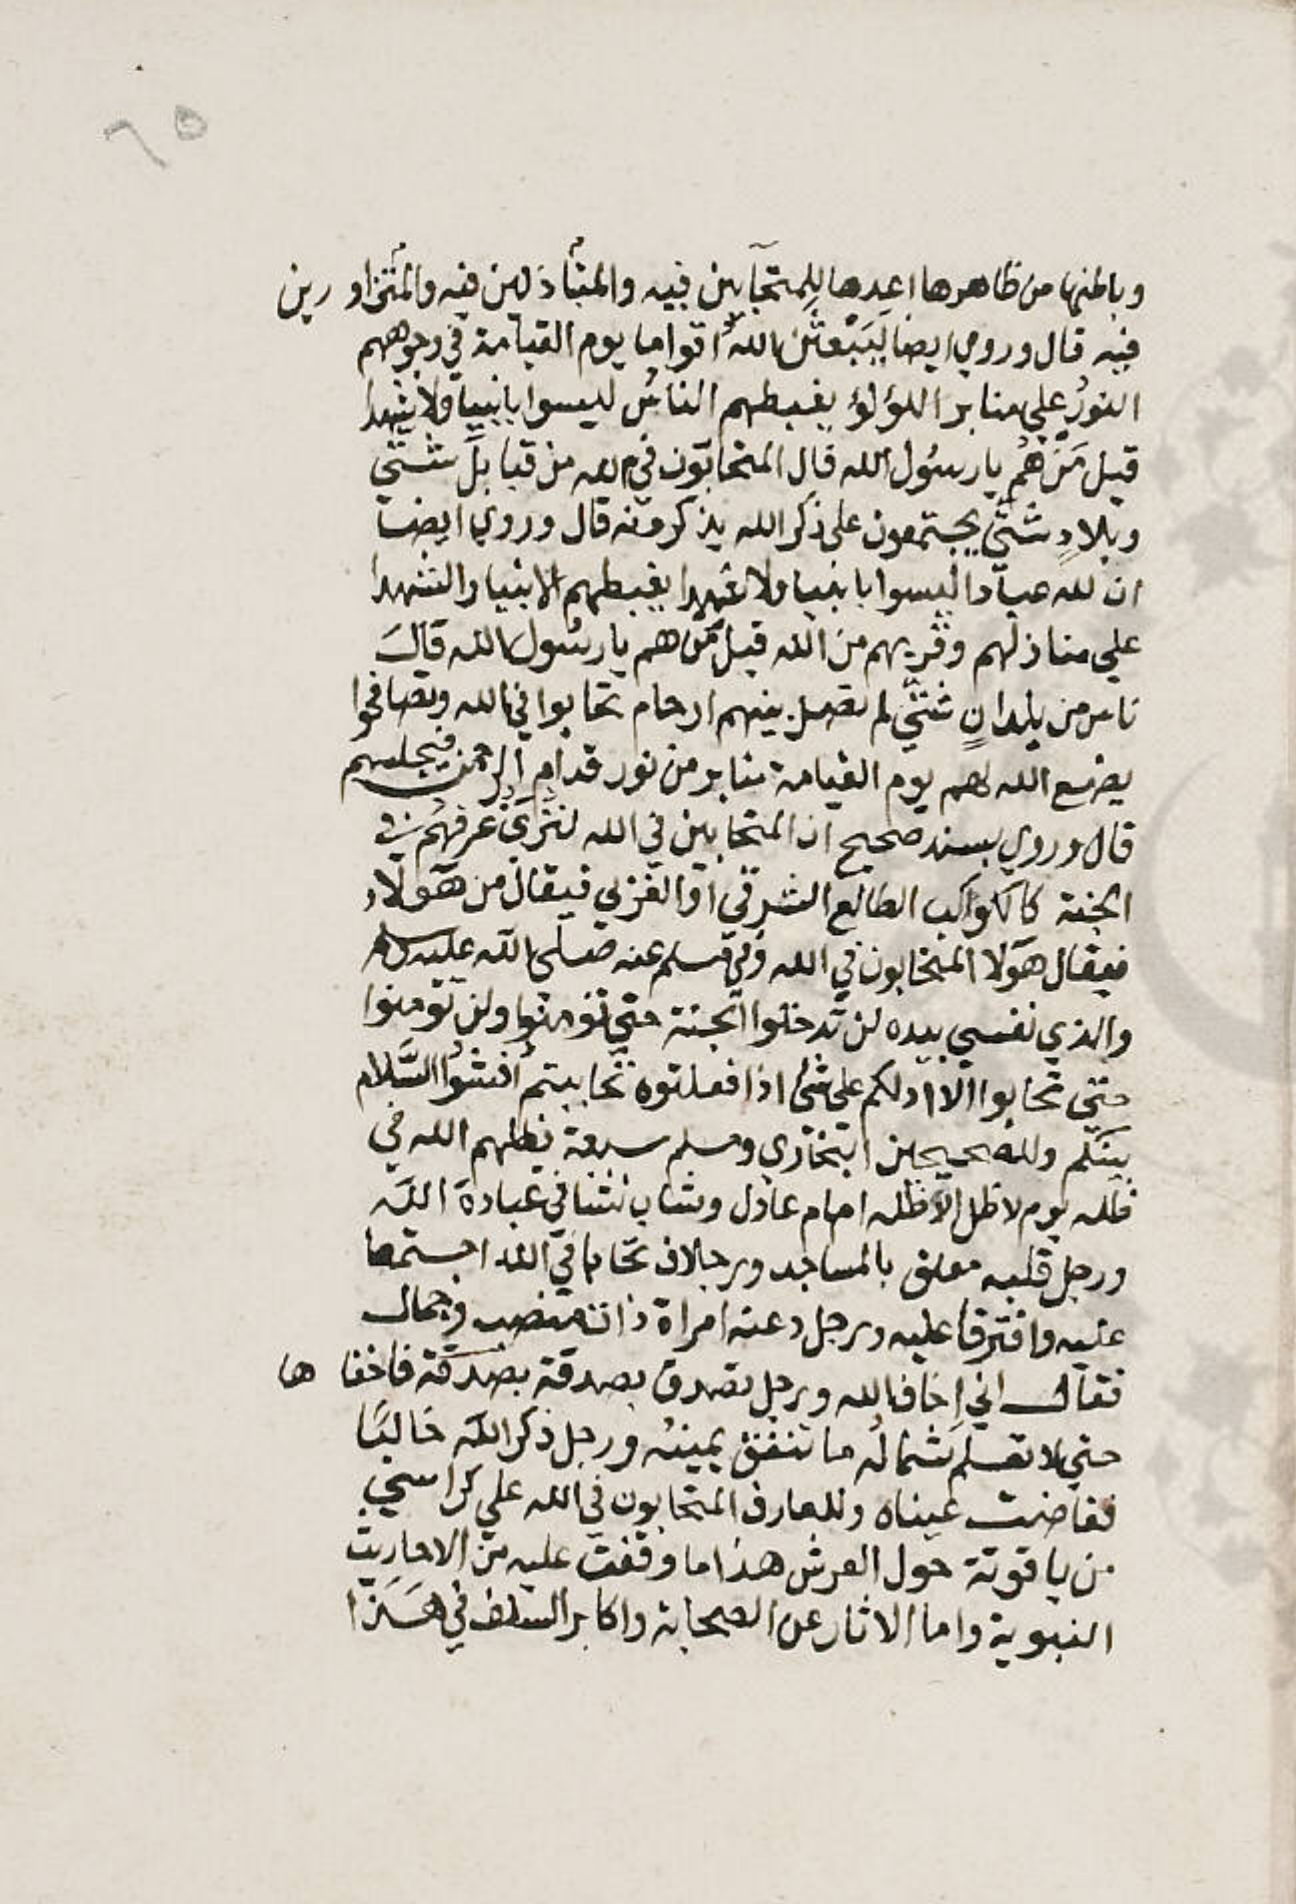 ٦٥
وباطنها من ظاهرها اعدها للمتحآبين فيه والمتبأذلين فيه والمتزاورين
فيه قال وروي ايضا ليَبْعثَنّ اللهُ اقواما يوم القيامة في وجوههم
النورُ علي منابر اللؤلؤ يغبطهم الناسُ ليسوا بانبيا ولا شهدا
قيل مَنْ هُم يا رسُول الله قال المتحابّون في الله من قبايل شتّي
وبلادٍ شتّي يجتمعون على ذكر الله يذكرونه قال وروي ايضا
ان لله عبادا ليسوا بانبيا ولا شهدا يغبطهم الانبيا والشهدا
علي منازلهم وقربهم من الله قيل مَن هم يا رسُول الله قال
ناس من بلدانٍ شتّي لم تصل بينهم ارحام تحابوا في الله وتصافحوا
يضع الله لهم يوم القيامة منابر من نور قدام الرحمن فيجلسهم
قال وروي بسند صحيح ان المتحابين في الله لتَرَى غرفهُم في
الجنة كالكواكب الطالع الشرقي او الغربي فيقال من هؤلاء
فيقال هَولا المتحابون في الله وفي مسلم عنه صلى الله عليه وسلم
والذي نفسي بيده لن تدخلوا الجنة حتي تؤمنوا ولن تؤمنوا
حتي تحابوا الا ادلكم على شئ اذا فعلتوه تحاببتم أفشُوا السَّلام
بينكم وللصحيحين البخاري ومسلم سبعة يظلهم الله في
ظله يوم لا ظل الا ظله امام عادل وشاب نشا في عبادة الله
ورجل قلبه معلق بالمساجد ورجلان تحابا في الله اجتمعا
عليه وافترقا عليه ورجل دعته امراة ذات منصب وجمال
فقال اني اخاف الله ورجل تصدق بصدقة بصدقة فاخفاها
حتي لا تعلم شمالُه ما تنفق يمينُه ورجل ذكر الله خاليًا
ففاضت عيناه وللعارف المتحابون في الله علي كراسي
من ياقوتة حول العرش هذا ما وقفت عليه من الاحاديث
النبوية واما الاثار عن الصحابة واكابر السلف في هَذا